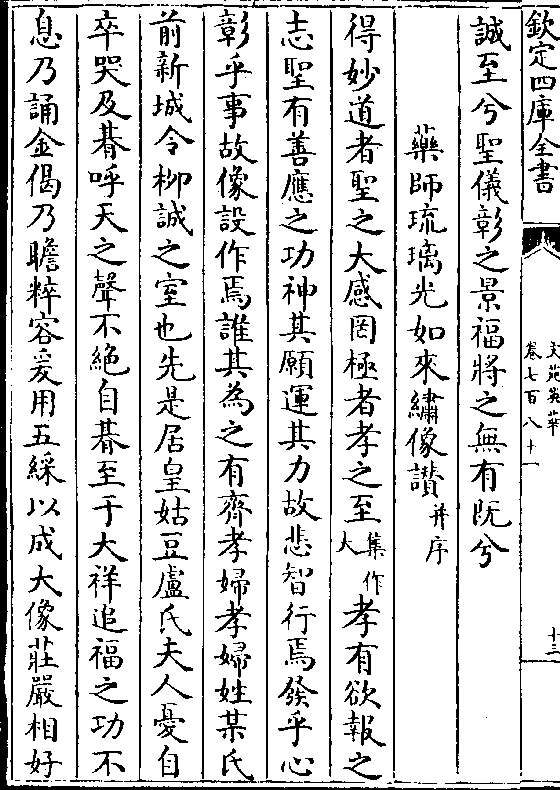 欽定四庫全書
文苑英華
卷七百八十一
十三
誠至兮聖儀彰之景福將之無有既兮
藥師琉璃光如來繡像讃并序
得妙道者聖之大感罔極者孝之至集作大孝有欲報之
志聖有善應之功神其願運其力故悲智行焉發乎心
彰乎事故像設作焉誰其為之有齊孝婦孝婦姓某氏
前新城令柳誠之室也先是居皇姑豆盧氏夫人憂自
卒哭及朞呼天之聲不絶自朞至于大祥追福之功不
息乃誦金偈乃瞻粹容爰用五綵以成大像莊嚴相好